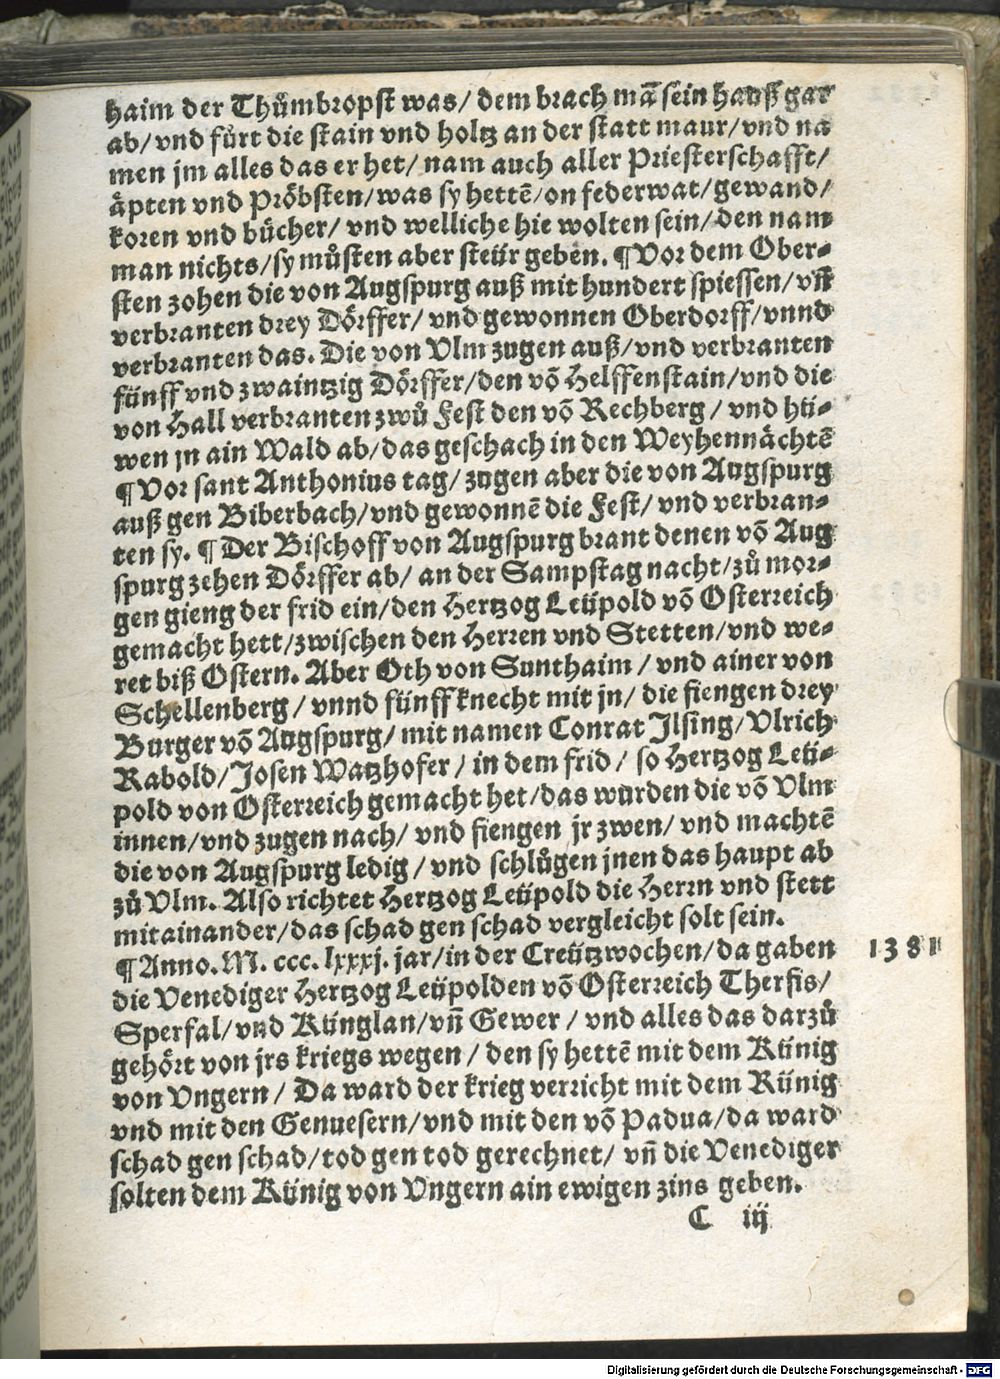 haim der Thůmbropst was/ dem brach mā sein hauß gar
ab/ vnd fůrt die stain vnd holtz an der statt maur/ vnd na
men jm alles das er het/ nam auch aller Priesterschafft/
åpten vnd Pröbsten/ was sy hettē/ on federwat/ gewand/
koren vnd bücher/ vnd welliche hie wolten sein/ den nam
man nichts/ sy můsten aber steür geben. ¶ Vor dem Ober-
sten zohen die von Augspurg auß mit hundert spiessen/ vñ
verbranten drey Dörffer/ vnd gewonnen Oberdorff/ vnnd
verbranten das. Die von Vlm zugen auß/ vnd verbranten
fünff vnd zwaintzig Dörffer/ den vō Helffenstain/ vnd die
von Hall verbranten zwů Fest den vō Rechberg / vnd hü-
wen jn ain Wald ab/ das geschach in den Weyhennächtē
¶ Vor sant Anthonius tag/ zugen aber die von Augspurg
auß gen Biberbach/ vnd gewonnē die Fest/ vnd verbran-
ten sy. ¶ Der Bischoff von Augspurg brant denen vō Aug
spurg zehen Dörffer ab/ an der Sampstag nacht/ zů mor-
gen gieng der frid ein/ den Hertzog Leüpold vō Osterreich
gemacht hett/ zwischen den Herren vnd Stetten/ vnd we-
ret biß Ostern. Aber Oth von Sunthaim / vnd ainer von
Schellenberg / vnnd fünff knecht mit jn/ die fiengen drey
Burger vō Augspurg/ mit namen Conrat Jlsing/ Vlrich
Rabold/ Josen Watzhofer / in dem frid / so Hertzog Leü-
pold von Osterreich gemacht het/ das wurden die vō Vlm
innen/ vnd zugen nach/ vnd fiengen jr zwen/ vnd machtē
die von Augspurg ledig / vnd schlůgen jnen das haupt ab
zů Vlm. Also richtet Hertzog Leüpold die Herrn vnd stett
mitainander/ das schad gen schad vergleicht solt sein.
¶ Anno. M. ccc. lxxxj. jar/ in der Creützwochen/ da gaben 1381
die Venediger Hertzog Leüpolden vō Osterreich Therfis/
Sperfal/ vnd Künglan/ vñ Gewer / vnd alles das darzů
gehört von jrs kriegs wegen / den sy hettē mit dem Künig
von Vngern / Da ward der krieg verricht mit dem Künig
vnd mit den Genuesern/ vnd mit den vō Padua/ da ward
schad gen schad/ tod gen tod gerechnet/ vñ die Venediger
solten dem Künig von Vngern ain ewigen zins geben.
C iij
Digitalisierung gefördert durch die Deutsche Forschungsgemeinschaft - DFG